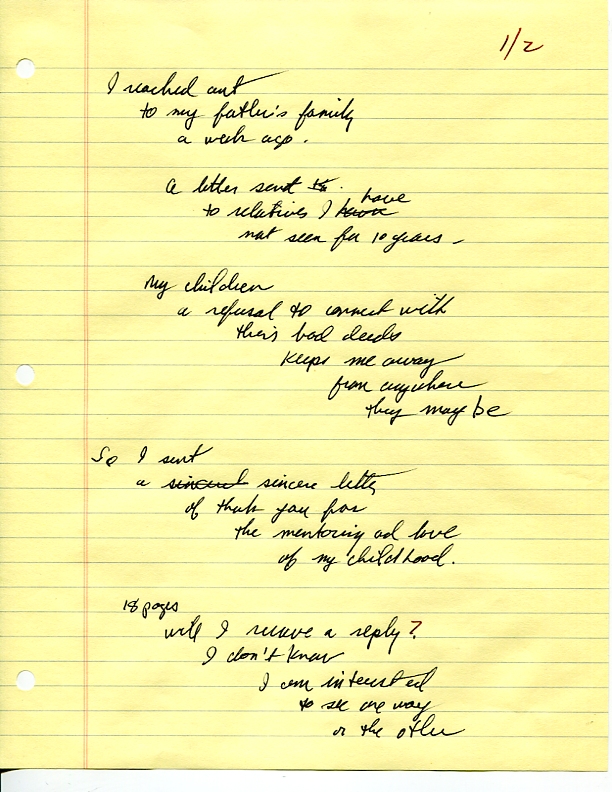 1/2
I reached out
to my father's family
a week ago.
a letter sent to.
have
to relatives I have
not seen for 10 years -
My children
a refusal to connect with
their bad deeds
keeps me away
from anywhere
they may be
So I sent
a sincere letter
of thank you for
the mentoring ad love
of my childhood.
18 pages
will I receive a reply?
I don't know
I am interested
to see one way
or the other